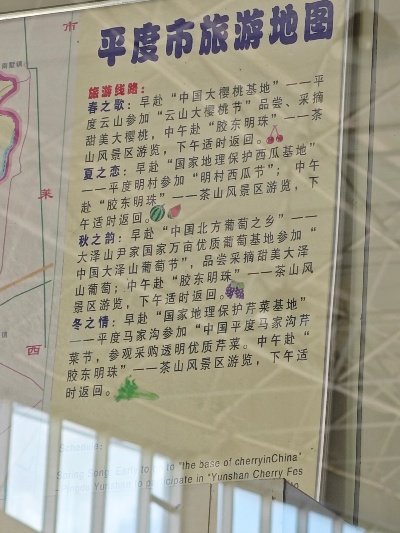 平度市旅游地图
旅游线路：
春之歌：早赴“中国大樱桃基地”——平
度云山参加“云山大樱桃节”品尝、采摘
甜美大樱桃，中午赴“胶东明珠”——茶
山风景区游览，下午适时返回。
夏之恋：早赴“国家地理保护西瓜基地”
——平度明村参加“明村西瓜节”；中午
赴“胶东明珠”——茶山风景区游览，下
午适时返回。
秋之韵：早赴“中国北方葡萄之乡”——
大泽山尹家国家万亩优质葡萄基地参加“
中国大泽山葡萄节”，品尝采摘甜美大泽
山葡萄；中午赴“胶东明珠”——茶山风
景区游览，下午适时返回。
冬之情：早赴“国家地理保护芹菜基地”
——平度马家沟参加“中国平度马家沟芹
菜节，参观采购透明优质芹菜。中午赴“
胶东明珠”——茶山风景区游览，下午适
时返回。
Schedule:
Spring Song: Early to go to "the base of cherryinChina"
Yunshan to participate in "Yunshan Cherry Fes
市
莱
西